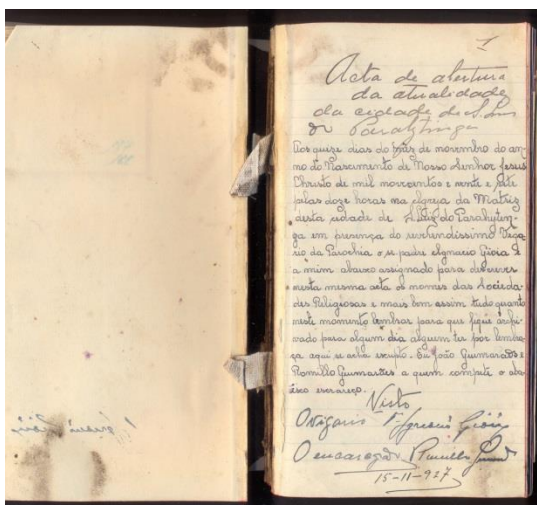 1
Acta de abertura
da atualidade
da cidade de S. Luiz
do Parahytinga
Aos quize dias do mez de novembro do an-
no do Nascimento de Nosso Senhor Jesus
Christo de mil novecentos e vinte e sete
pelas doze horas na Egreja da Matriz
desta cidade de S. Luiz do Parahytin-
ga em presença do reverendissimo Viga
rio da Parochia o sr padre Ignacio Gioia e
a mim abaixo assignado para descrever
nesta mesma acta os nomes das Socieda-
des Religiosas e mais bem assim tudo quanto
neste momento lembrar para que fique archi-
vado para algum dia alguem ter por lembra
ça aqui se acha escripto. Eu João Guimarães
Romillo Guimarães a quem compete o aba
ixo escrareço.
Visto
O vigario P. Ignacio Gioia
O encarregado Romillo
15-11-927